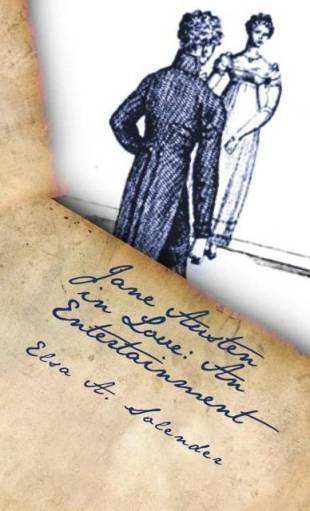 Jane Austen
in Love: An
Entertainment
Elsa A. Solender